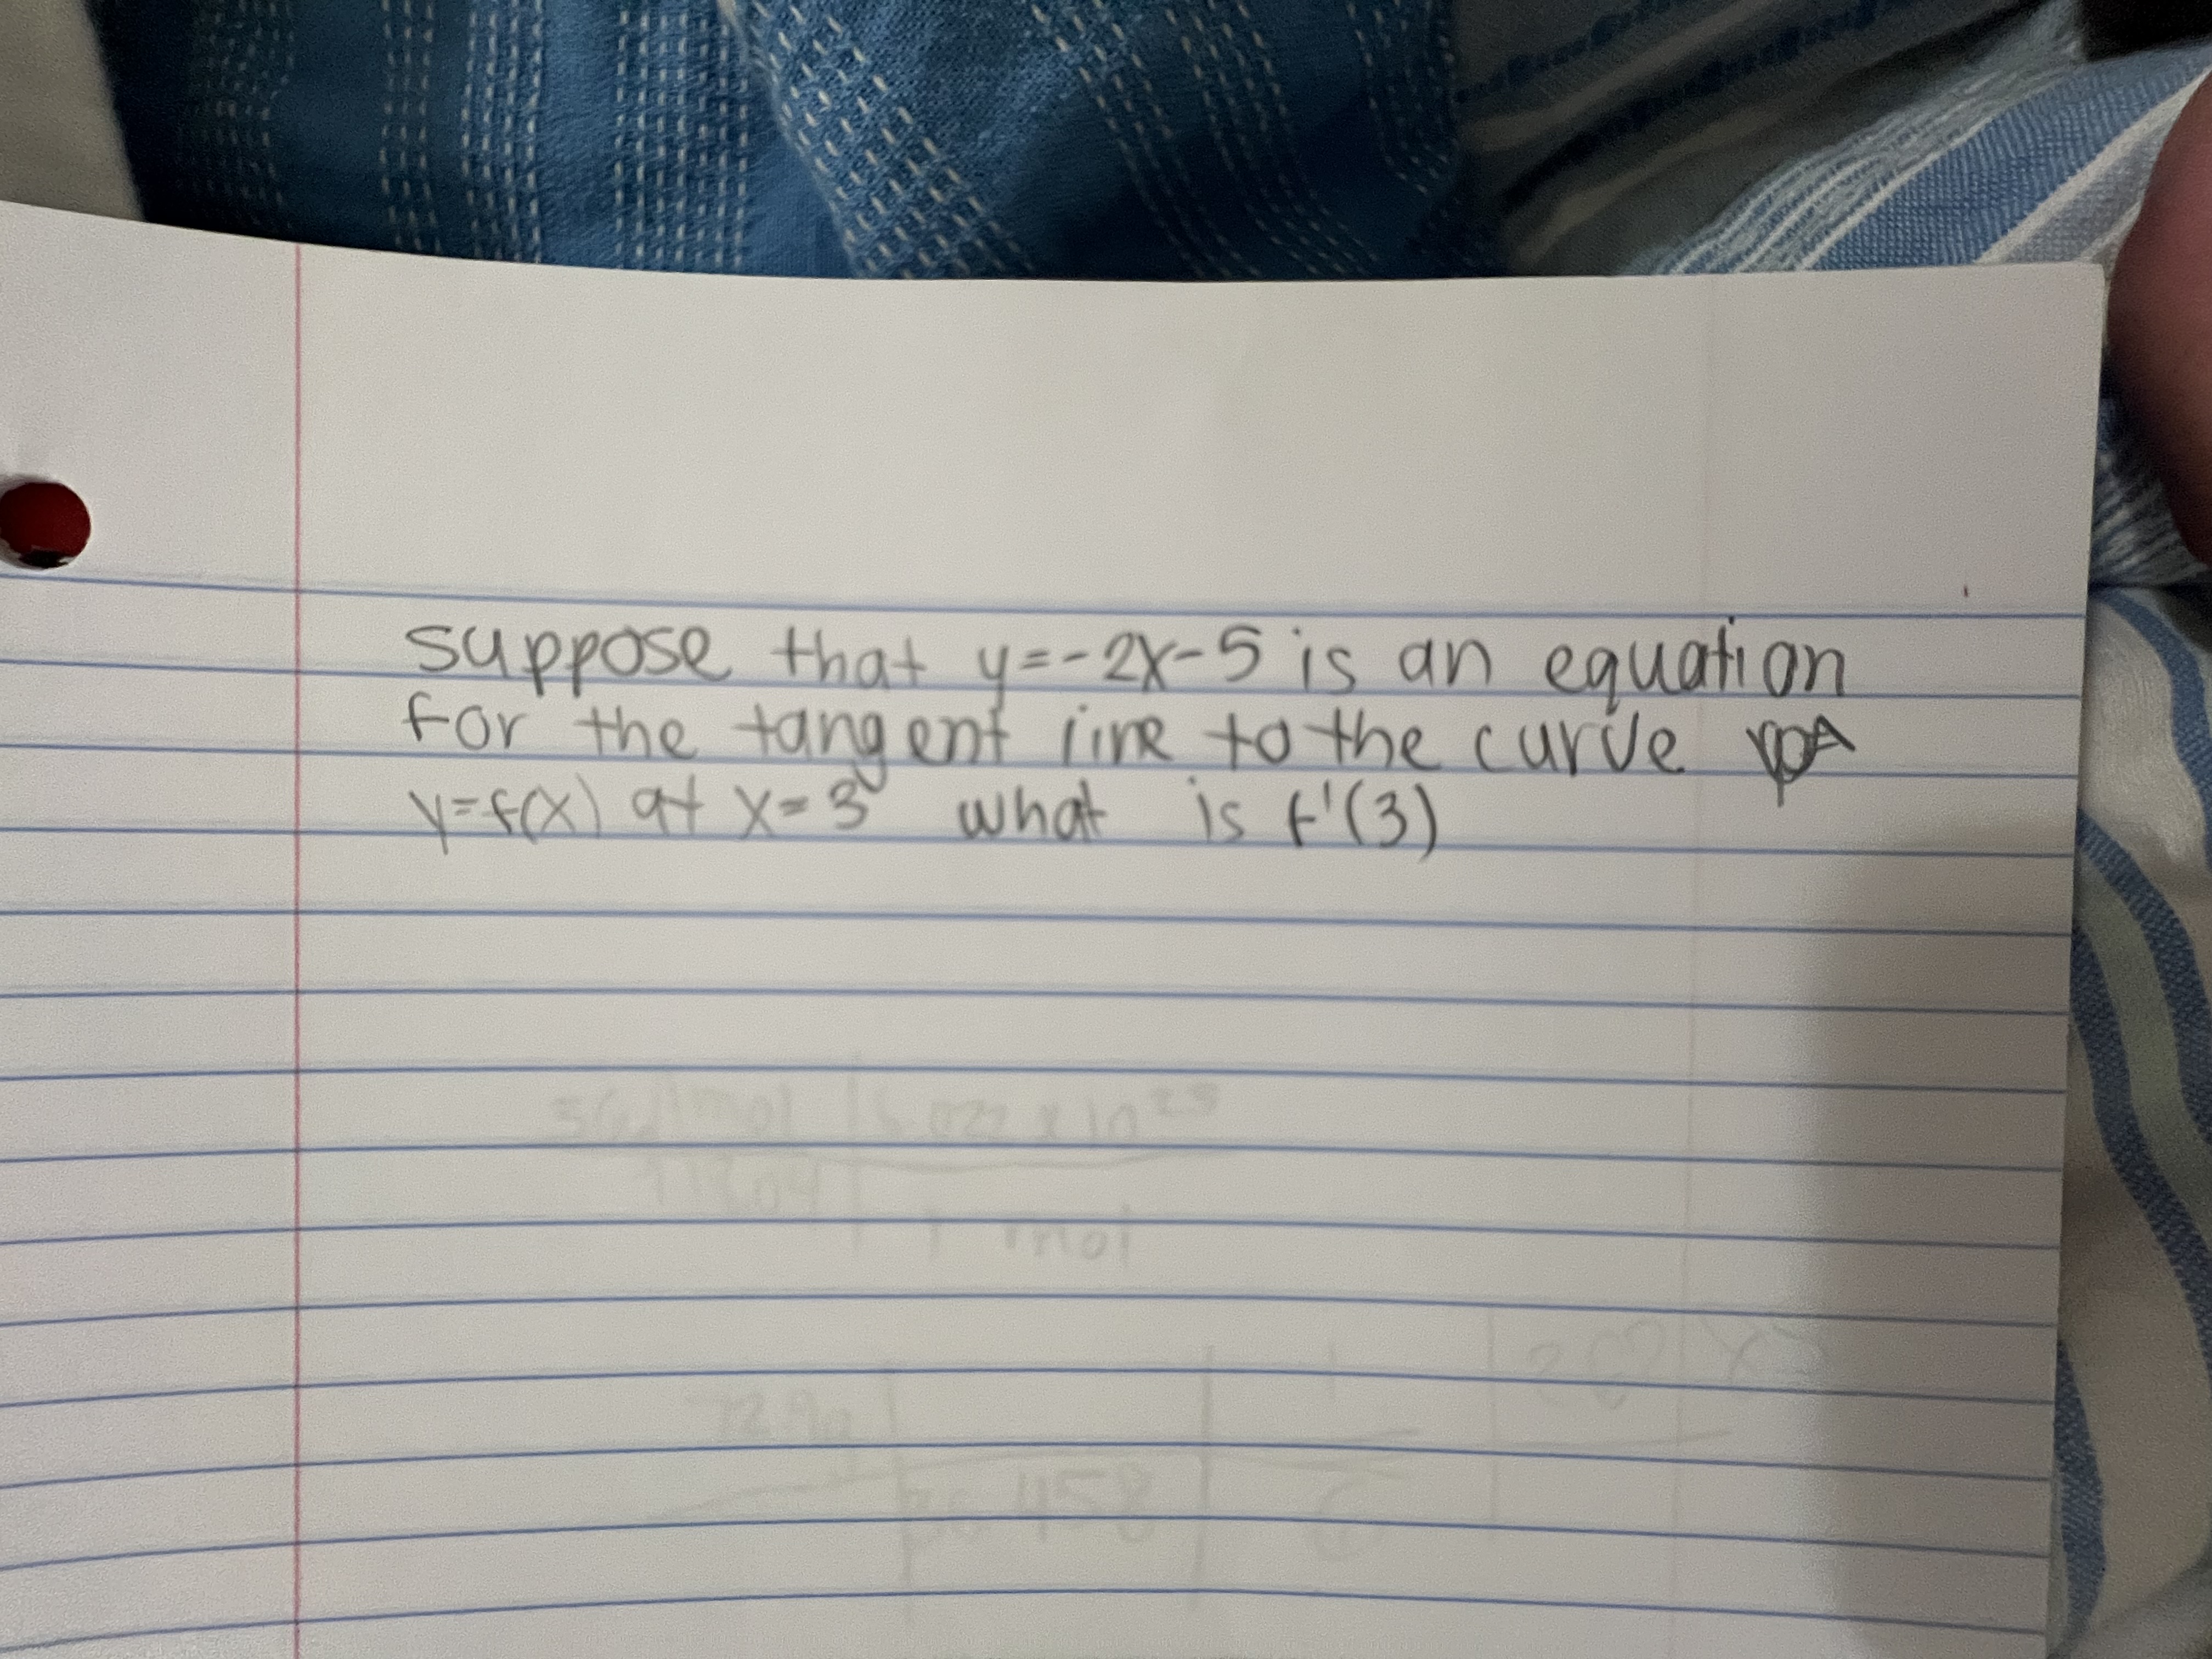 suppose that y=-2x-5 is an equation
for the tangent line to the curve
y=f(x) at x=3 what is f'(3)
1 mol